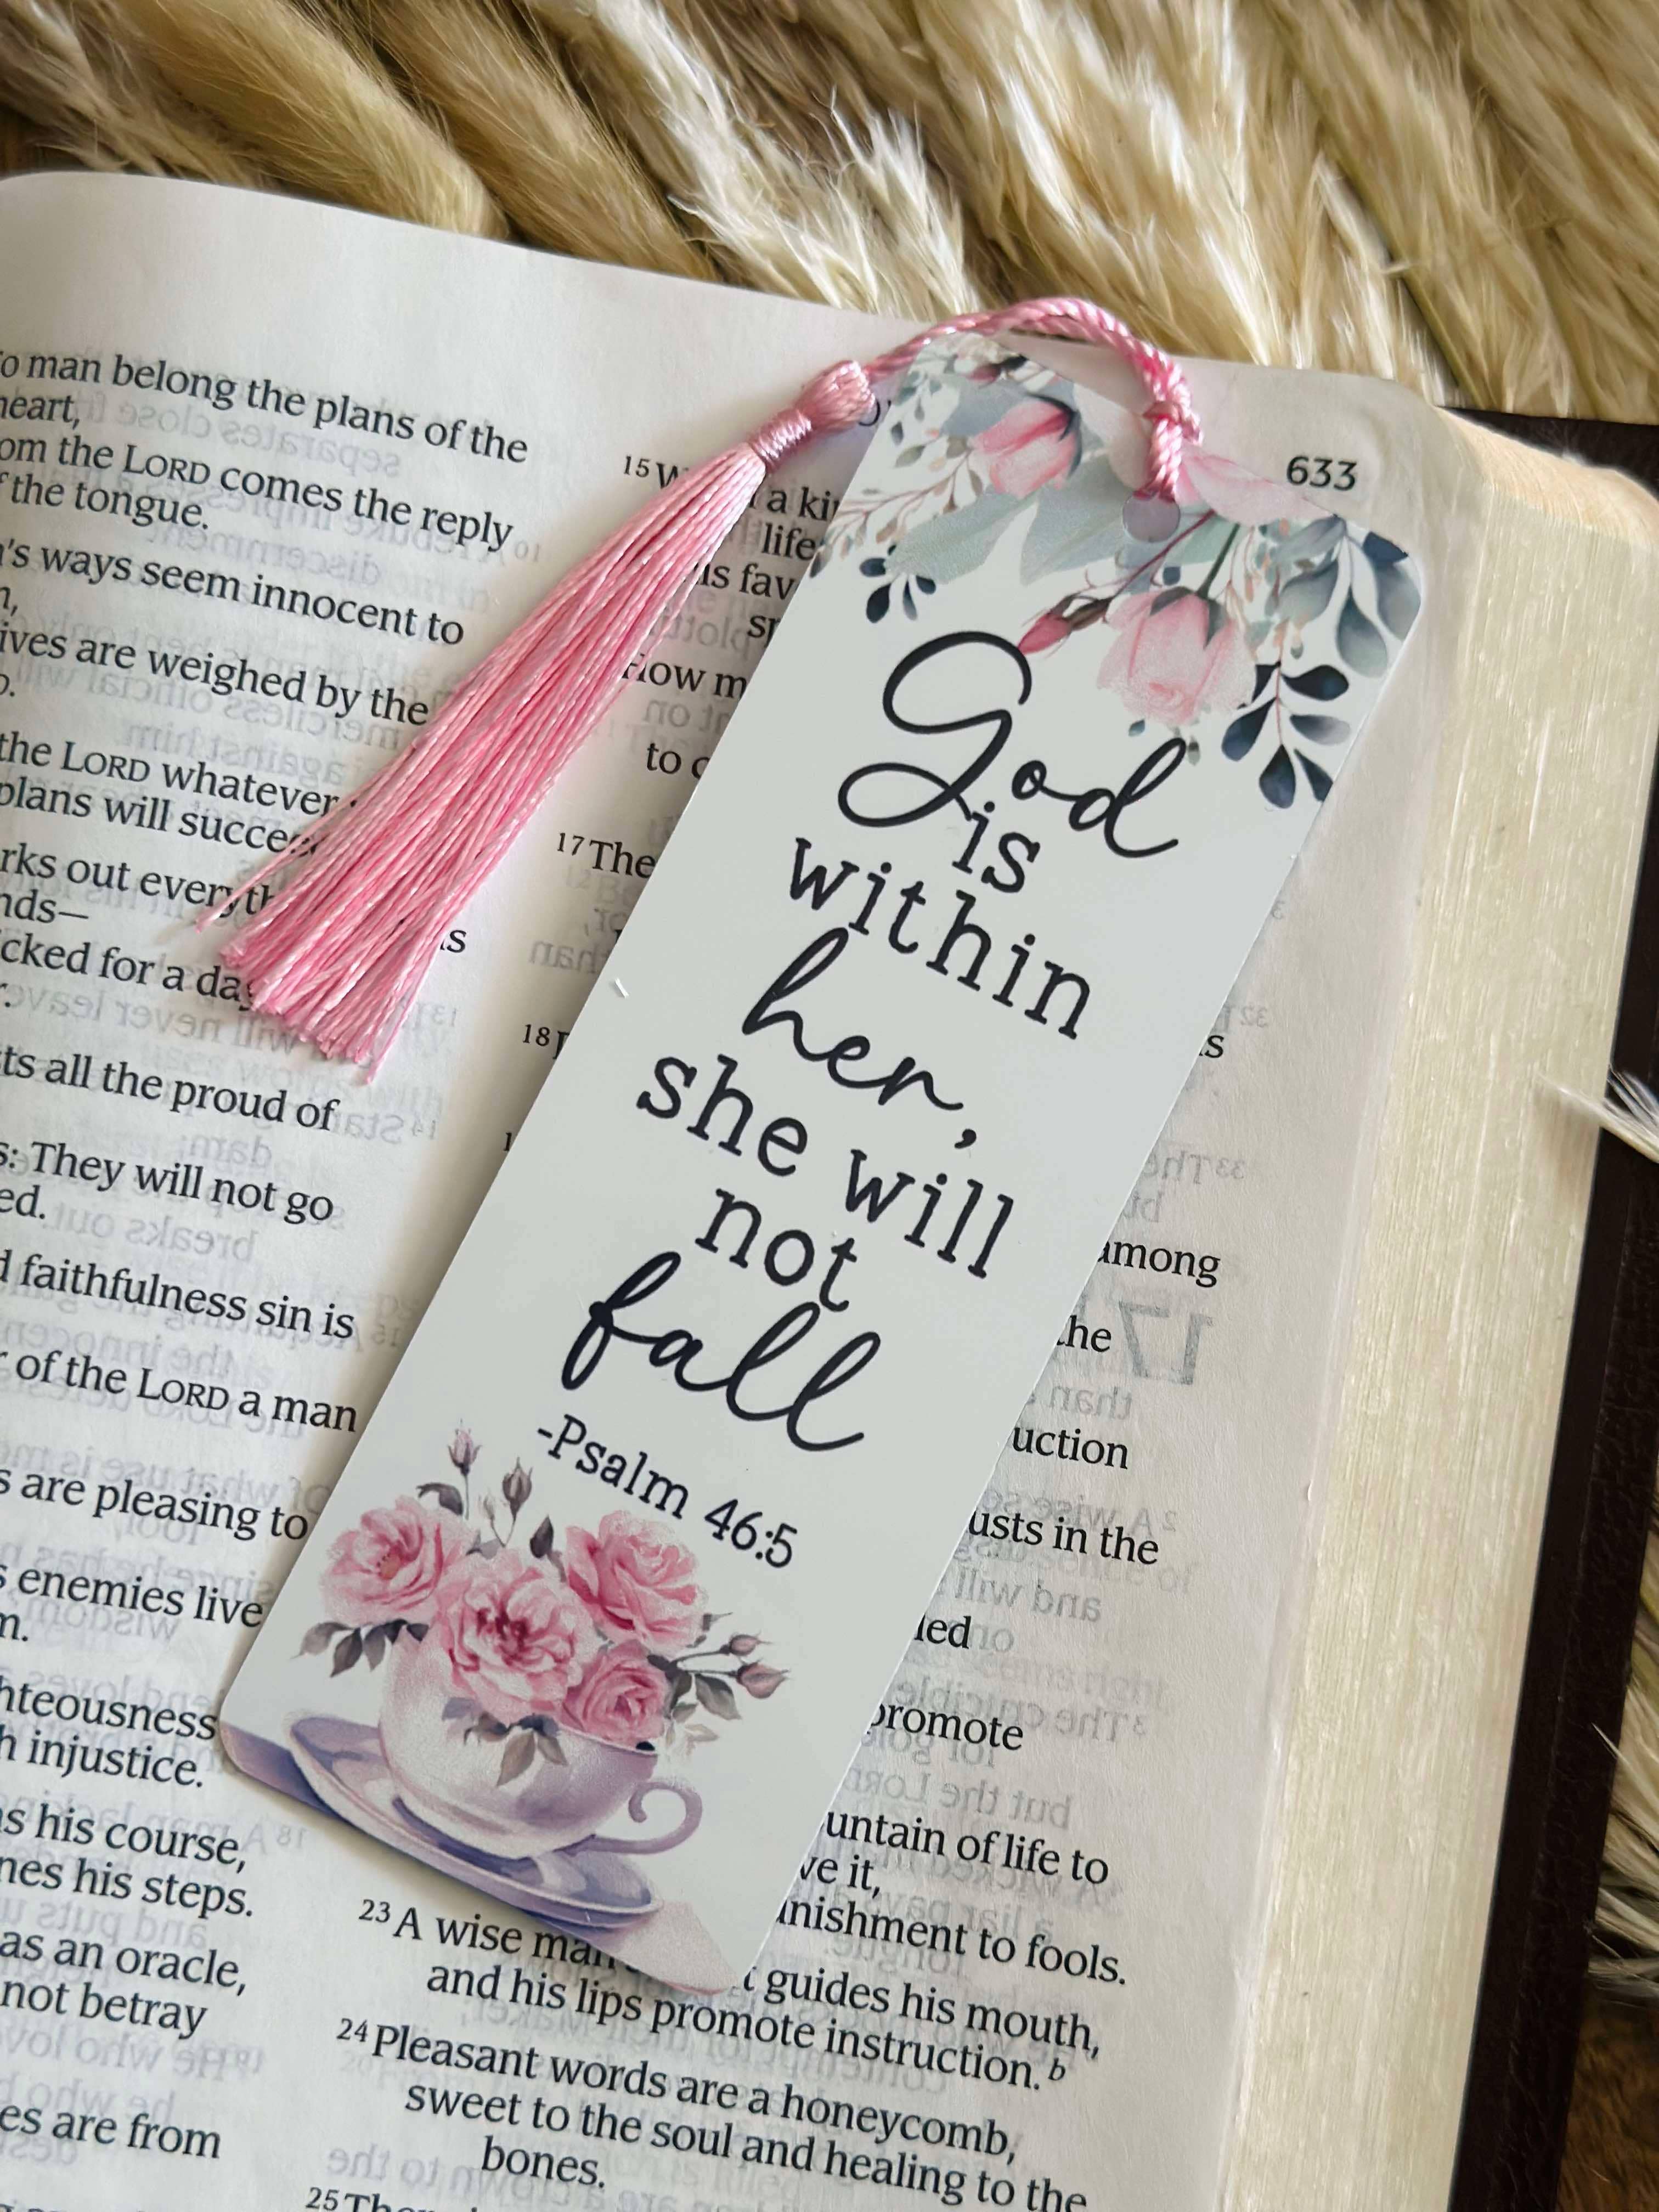 633
God
is
within
her,
she will
not
fall
-Psalm 46:5
o man belong the plans of the
heart,
om the LORD comes the reply
the tongue.
's ways seem innocent to
ives are weighed by the
the LORD whatever
plans will succe
rks out everyth
nds—
cked for a day
ts all the proud of
s: They will not go
ed.
d faithfulness sin is
of the LORD a man
s are pleasing to
s enemies live
m.
hteousness
h injustice.
ns his course,
nes his steps.
as an oracle,
not betray
es are from
15 W a ki
life
is fav
sp
How m
to c
17 The
18 P
is
among
the
uction
usts in the
led
promote
untain of life to
ve it,
nishment to fools.
23 A wise man t guides his mouth,
and his lips promote instruction. b
24 Pleasant words are a honeycomb,
sweet to the soul and healing to the
bones.
25 The